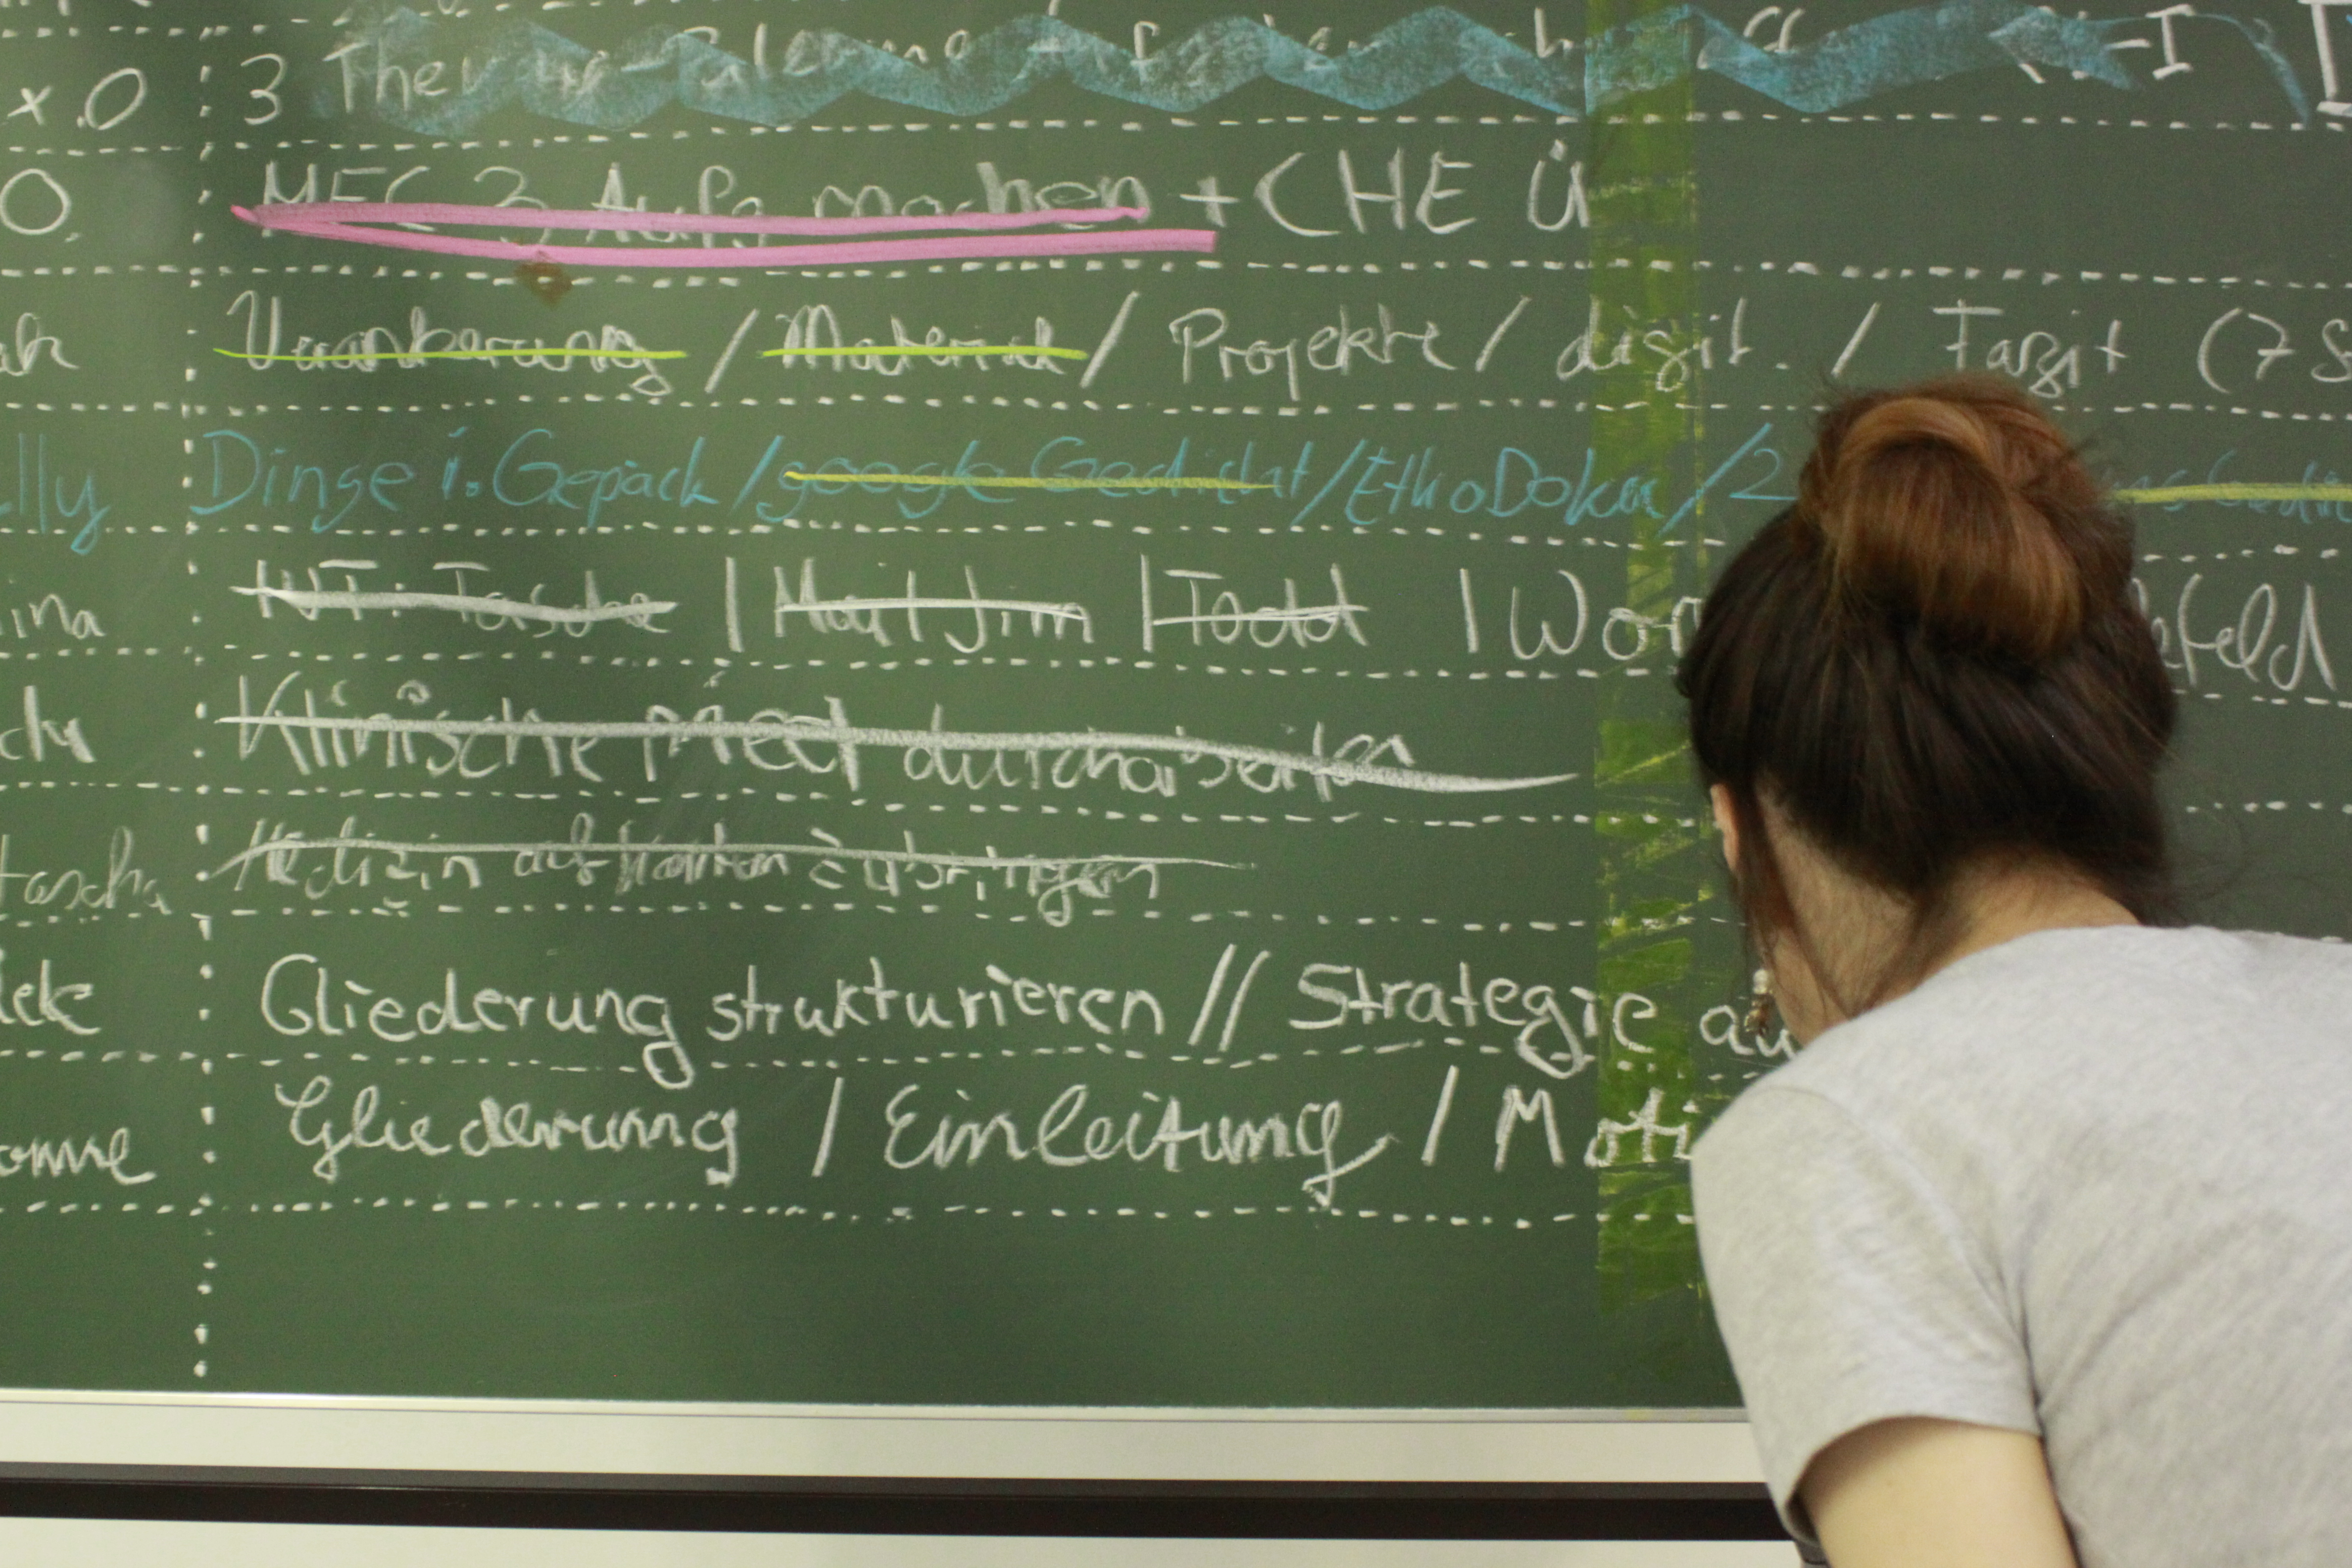 x.0 3
0. MEC 3 Aufg machen + CHE Ü
Verankerung / Material / Projekte / digit. / Fazit (7 S
lly Dinge i. Gepäck / google Gedicht / EthoDoku / 2
ina WT: Tasche | Mail Jim | Todd | Wor efeld
Klinische Med durcharbeiten
tascha Medizin auf Karten
Gliederung strukturieren // Strategie au
onne Gliederung / Einleitung / Moti